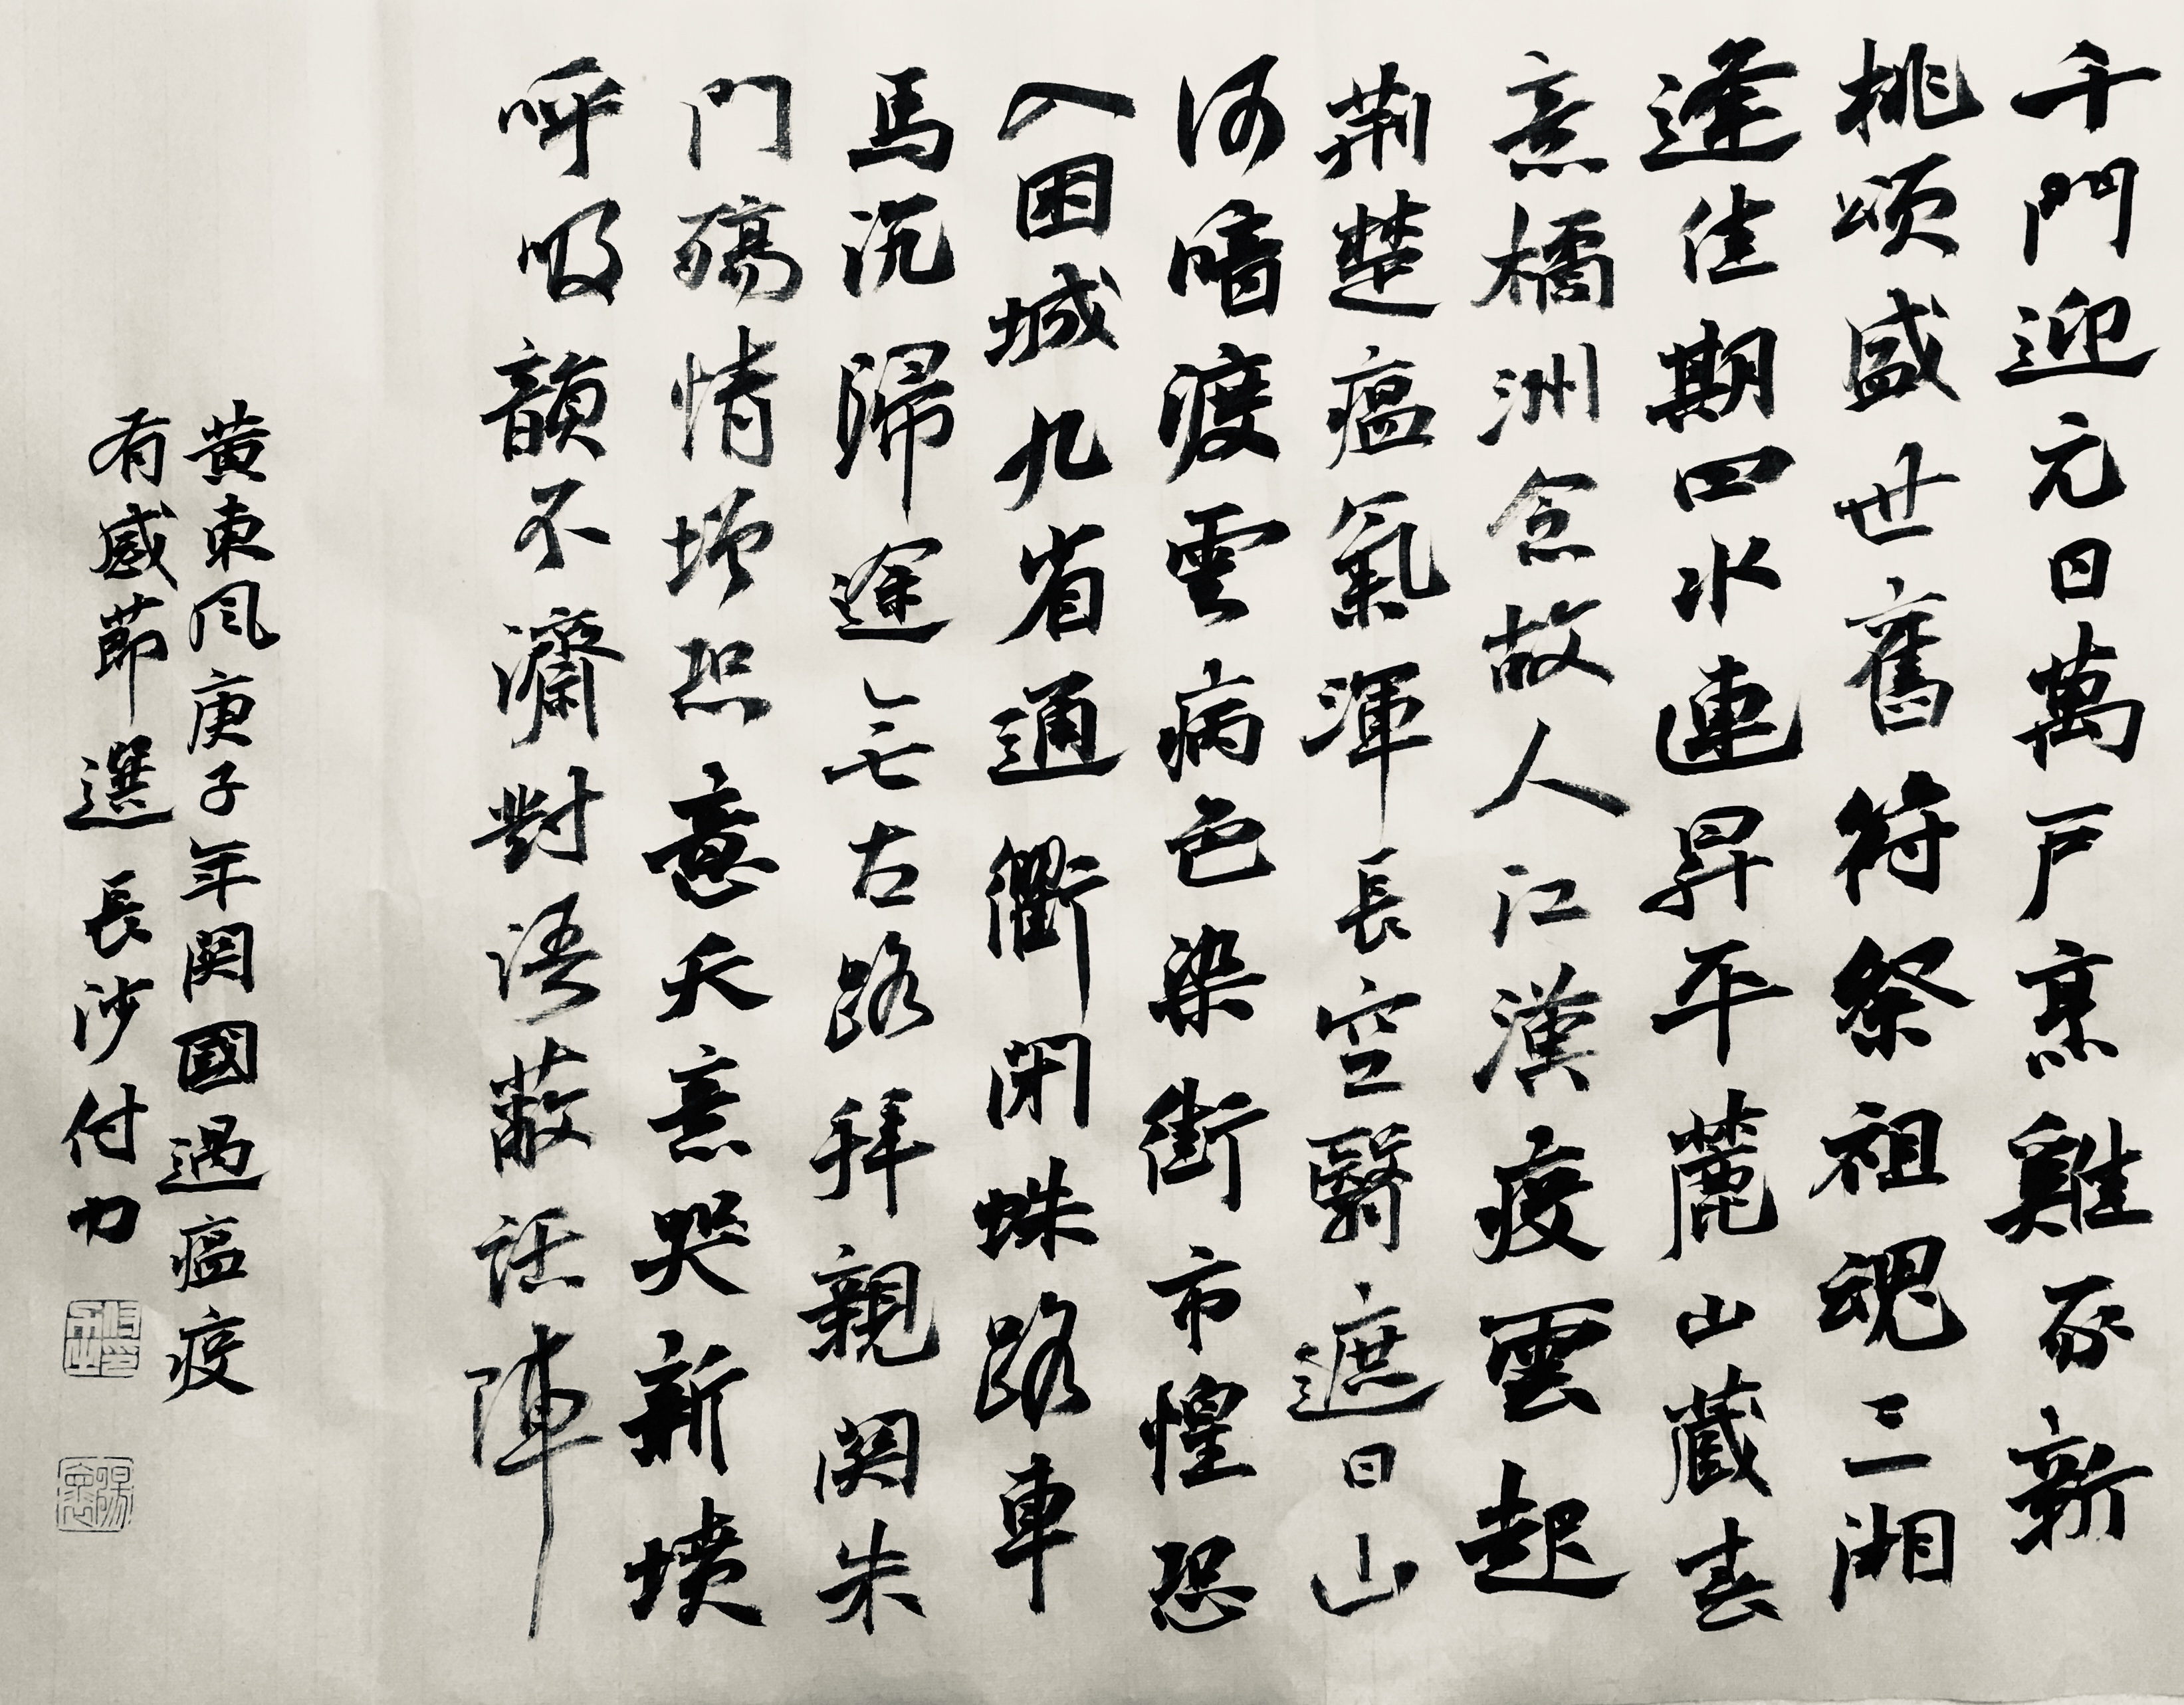 千門迎元日萬戶烹雞豕新
桃頌盛世舊符祭祖魂三湘
逢佳期四水連昇平麓山藏春
意橘洲念故人江漢疫雲起
荊楚瘟氣渾長空翳遮日山
河暗渡雲病色染街市惶恐
入困城九省通衢閉蛛路車
馬沉歸途亡古路拜親関朱
門殤情增恐意天意哭新墳
呼吸韻不濟對語蔽話陣
黃東风庚子年関國過瘟疫
有感節選 長沙付力